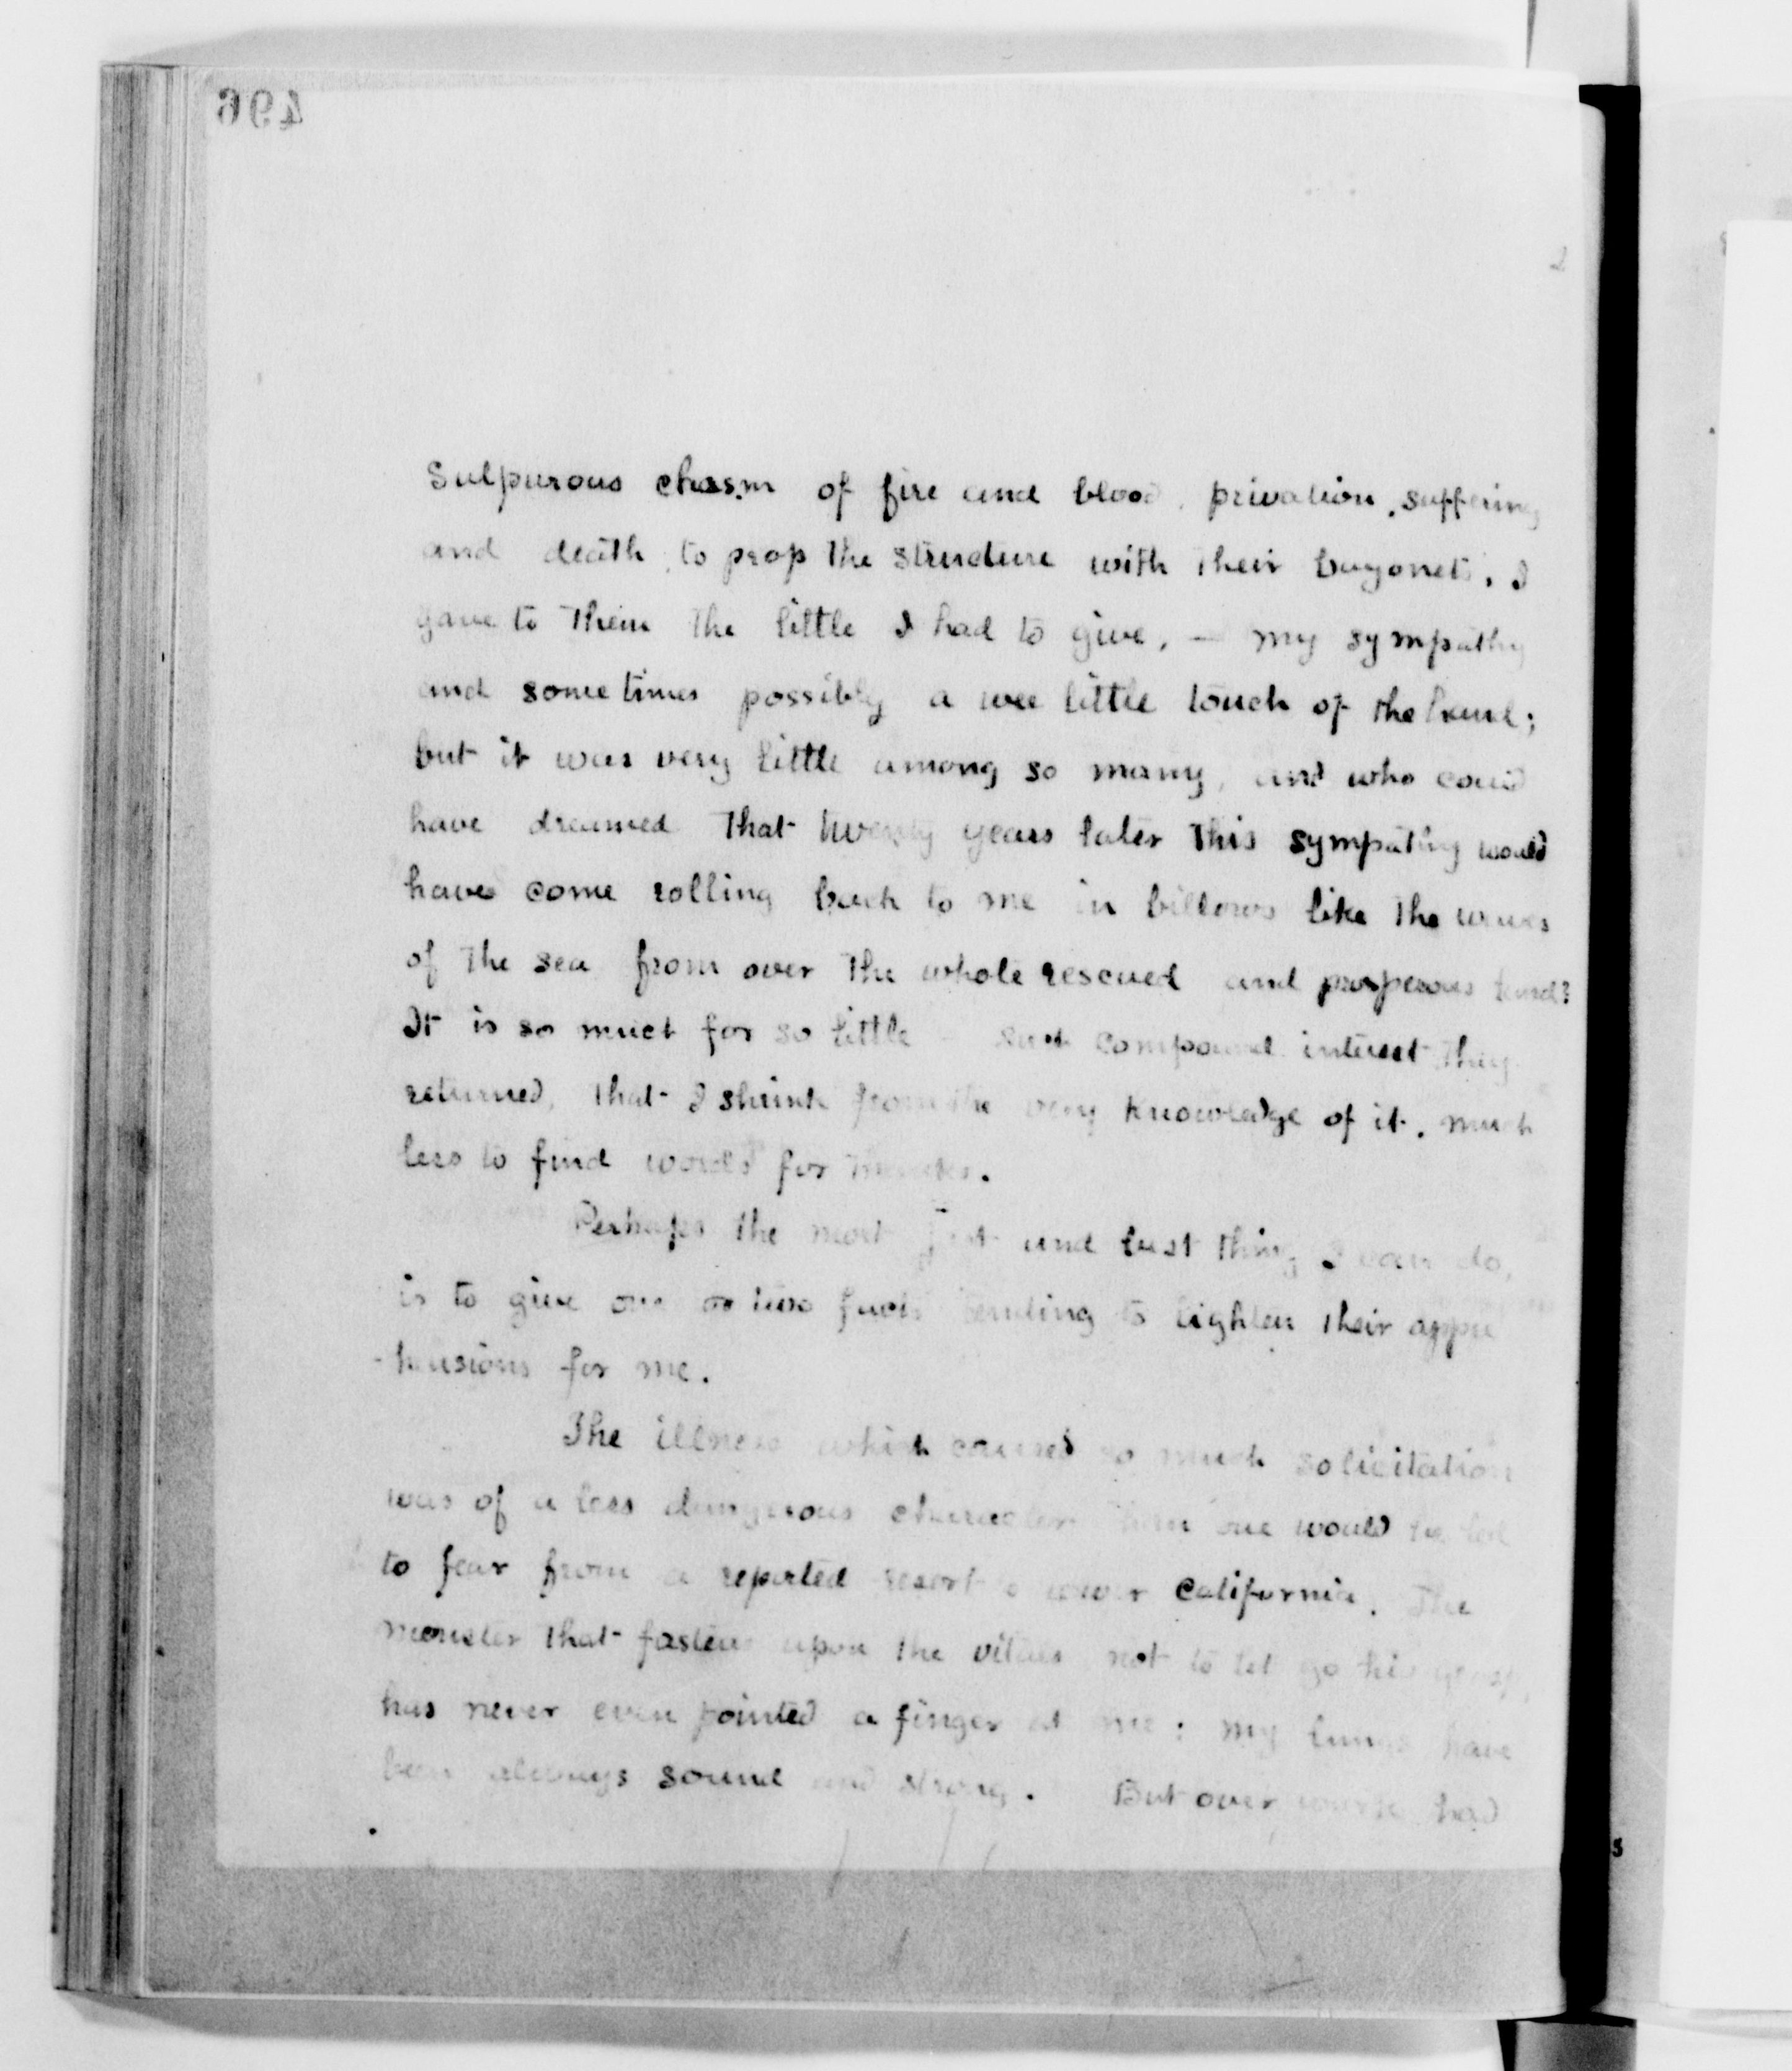 496
2
Sulpurous chasm of fire and blood, privation, suffering
and death, to prop the structure with their bayonets. I
gave to them the little I had to give, - my sympathy
and sometimes possibly a wee little touch of the hand;
but it was very little among so many, and who could
have dreamed that twenty years later this sympathy would
have come rolling back to me in billows like the waves
of the sea from over the whole rescued and prosperous land?
It is so much for so little - such compound interest they
returned, that I shrink from the very knowledge of it. much
less to find words for thanks.
Perhaps the most just and best thing I can do,
is to give one or two facts tending to lighten their appre
-hensions for me.
The illness which caused so much solicitation
was of a less dangerous character than one would be led
to fear from a reported resort to lower California. The
monster that fastens upon the vitals not to let go his grasp,
has never even pointed a finger at me: my lungs have
been always sound and strong. But over work had